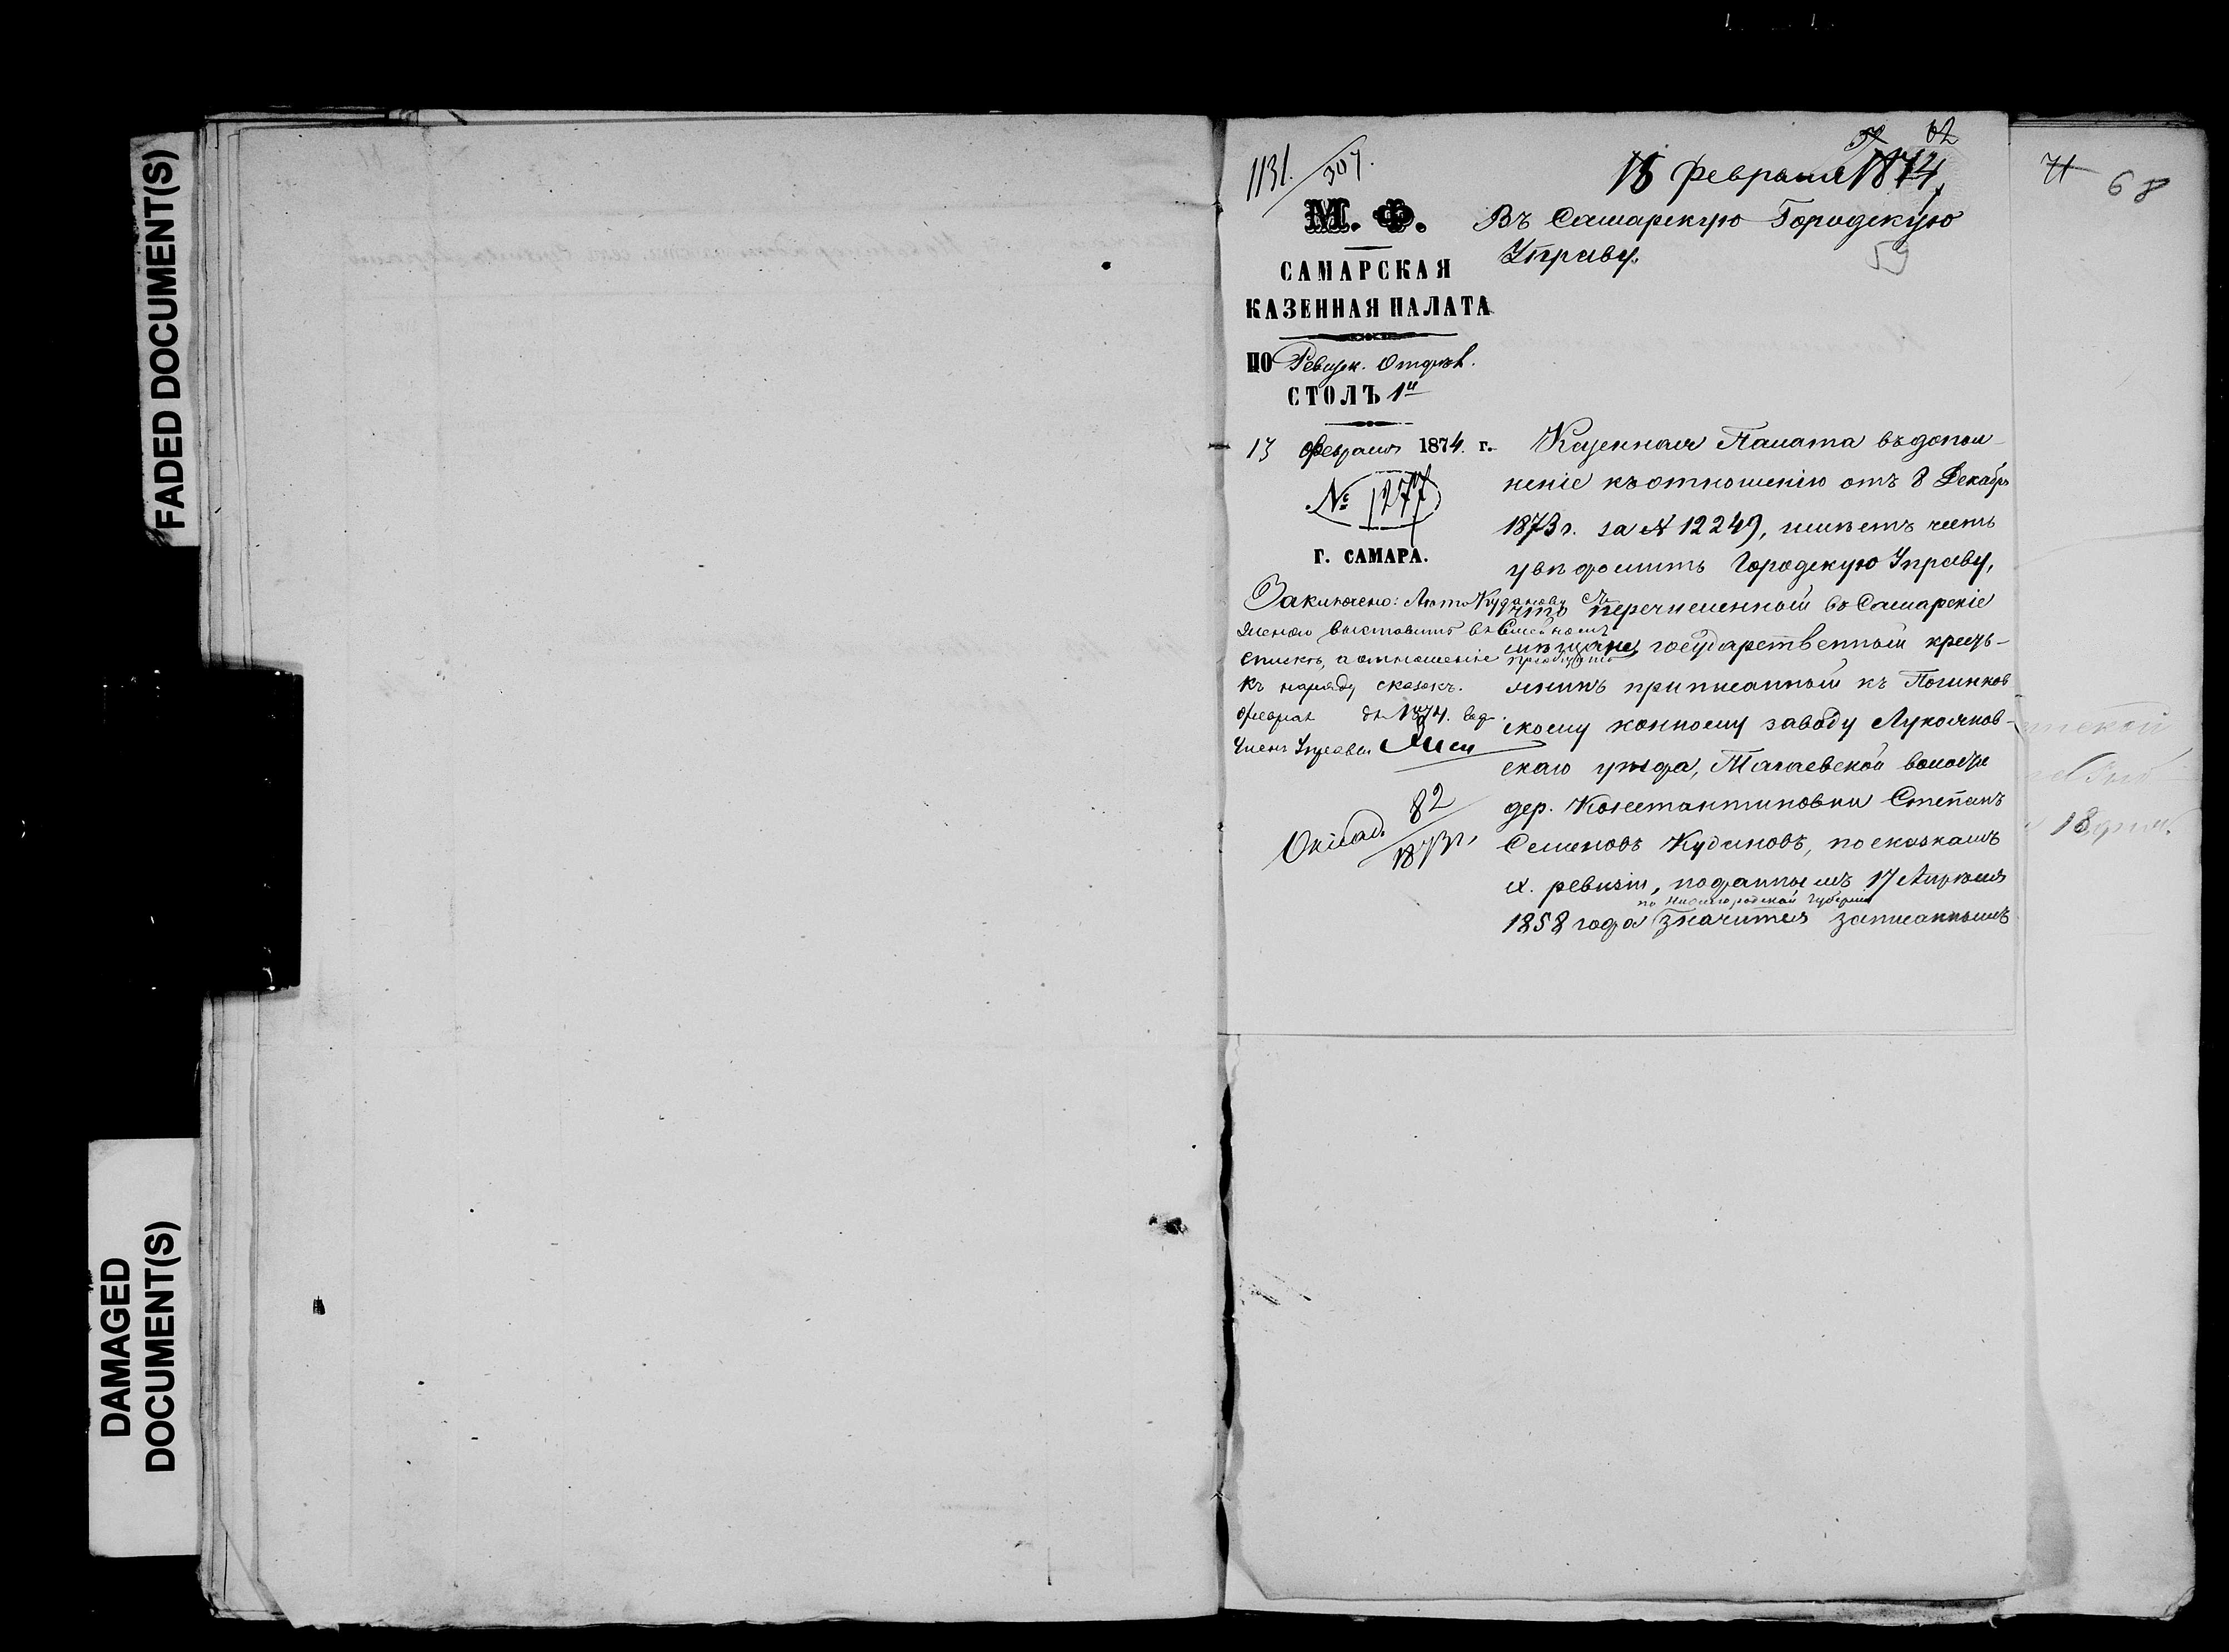 FADED DOCUMENT(S)
DAMAGED
DOCUMENT(S)
1131. / 307.
62
15 февраля 1874
71
68
М. Ф.
САМАРСКАЯ
КАЗЕННАЯ ПАЛАТА
ПО Ревизск. Отдѣл.
СТОЛЪ 1й
13 февраля 1874. г.
№ 1277
Г. САМАРА.
Въ Самарскую Городскую
Управу.
59
Казенная Палата въ допол-
неніе къ отношенію отъ 8 Декабря
1873 г. за № 12249, имѣетъ честь
увѣдомить Городскую Управу,
что перечисленный въ Самарскіе
мѣщане, государственный кресть-
янинъ приписанный къ Починков
скому конному заводу Лукоянов-
скаго уѣзда, Тагаевской волости
дер. Константиновки Степанъ
Семеновъ Кудиновъ, по сказкамъ
X. ревизіи, поданнымъ 17 Апрѣля
по Нижегородской Губерніи
1858 года значится записаннымъ
Заключено: Кудинову съ
женою выставить въ Семейномъ
спискѣ, а отношеніе пріобщить
къ наряду сказокъ.
Февраля дн 1874.
Членъ Управы
82
1873 г.
18